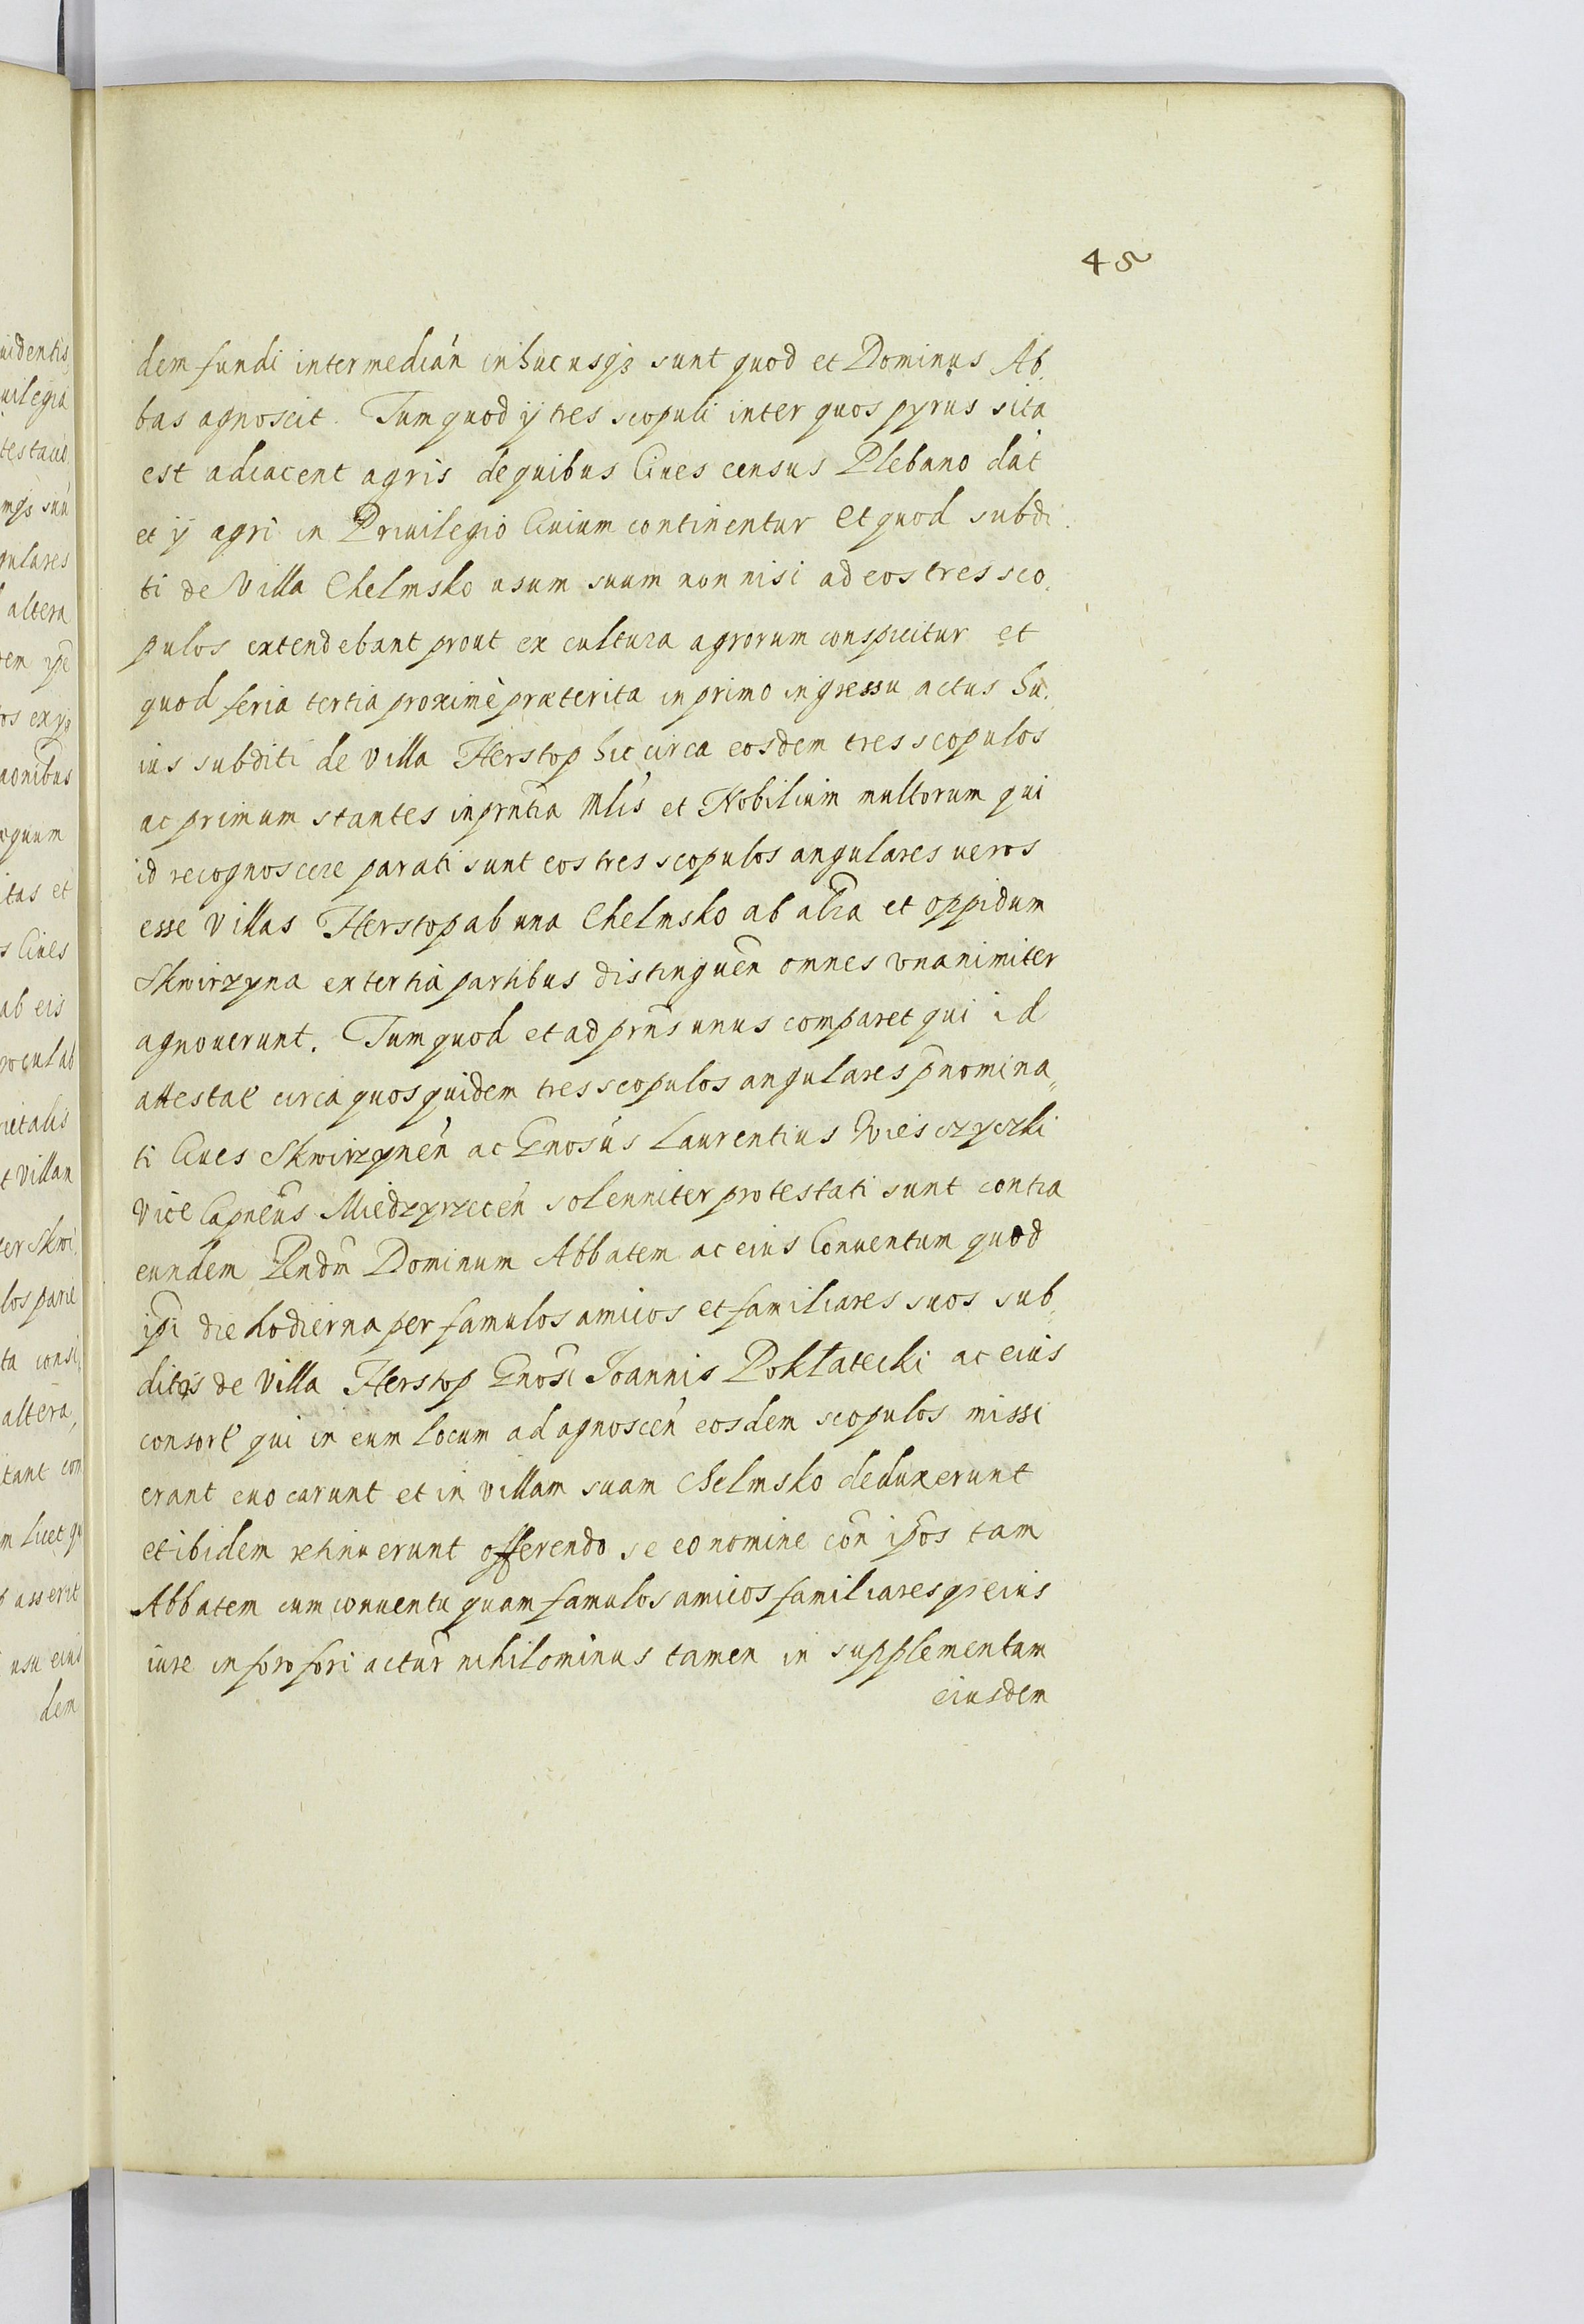 45
dem fundi intermedian̄ inhucusqꝫ sunt quod et Dominus Ab,
bas agnoscit. Tum quod ij tres scopuli inter quos pyrus sita
est adiacent agris de quibus Ciues census Plebano dāt
et ij agri in Priuilegio Ciuium continentur Et quod subdi,
ti de Villa Chelmsko usum suum non nisi ad eos tres sco,
pulos extendebant prout ex cultura agrorum conspicitur et
quod feria tertia proximè præterita in primo ingressu actus hu,
ius subditi de villa Herstop hic circa eosdem tres scopulos
ac primum stantes in prn̄tia Mlis et Nobilium multorum qui
id recognoscere parati sunt eos tres scopulos angulares ueros
esse villas Herstop ab una Chelmsko ab alr̄a et oppidum
Skwirzyna ex tertia partibus distinguen̄ omnes vnanimiter
agnouerunt. Tum quod et ad prn̄s unus comparet qui id
attestat̄ circa quos quidem tres scopulos angulares p̄nomina,,
ti Ciues Skwirzynen̄ ac Gnosus Laurentius Wiesczyczki
Vice Capneus Miedzyrzecen̄ solenniter protestati sunt contra
eundem Rndm̄ Dominum Abbatem ac eius Conuentum quod
ip̄i die hodierna per famulos amicos et familiares suos sub,,
ditos de Villa Herstop Gnosi Joannis Pokłatecki ac eius
consort̄ qui in eum locum ad agnoscen̄ eosdem scopulos missi
erant euocarunt et in villam suam Chelmsko deduxerunt
et ibidem retinuerunt offerendo se eo nomine con̄ ip̄os tam
Abbatem cum conuentu quam famulos amicos familiaresqꝫ eius
iure in foro fori actur̄ nihilominus tamen in supplementum
eiusdem